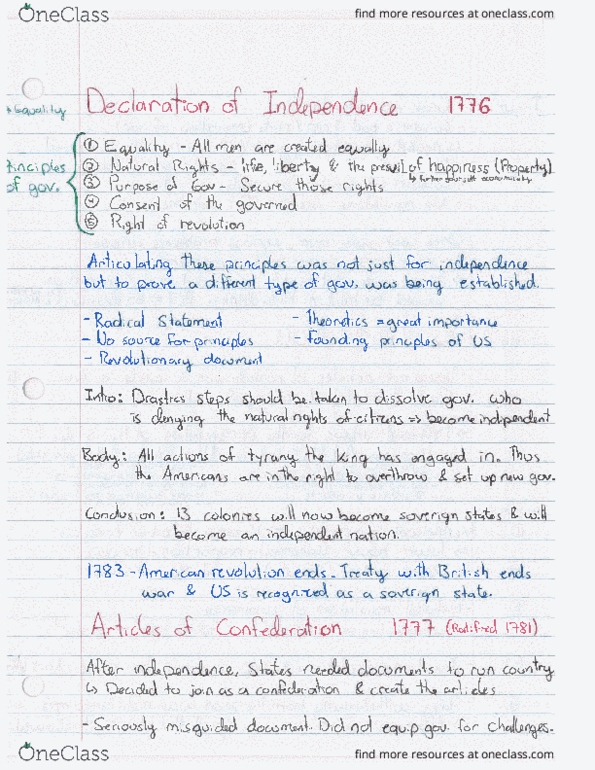 OneClass
find more resources at oneclass.com
Equality
Declaration of Independence 1776
① Equality - All men are created equally
② Natural Rights - life, liberty & the of happiness (Property)
↳ further yourself economically
③ Purpose of Gov - Secure those rights
rinciples
of gov.
④ Consent of the governed
⑤ Right of revolution
Articulating these principles was not just for independence
but to prove a different type of gov. was being established.
- Radical Statement - Theoretics = great importance
- No source for principles - Founding principles of US
- Revolutionary document
Intro: Drastics steps should be taken to dissolve gov. who
is denying the natural rights of citizens => become independent
Body: All actions of tyrany the King has engaged in. Thus
the Americans are in the right to overthrow & set up new gov.
Conclusion: 13 colonies will now become soverign states & will
become an independent nation.
1783 - American revolution ends. Treaty with British ends
war & US is recognized as a soverign state.
Articles of Confederation 1777 (Ratified 1781)
After independence, States needed documents to run country
↳ Decided to join as a confederation & create the articles
- Seriously misguided document. Did not equip gov. for challenges.
OneClass
find more resources at oneclass.com